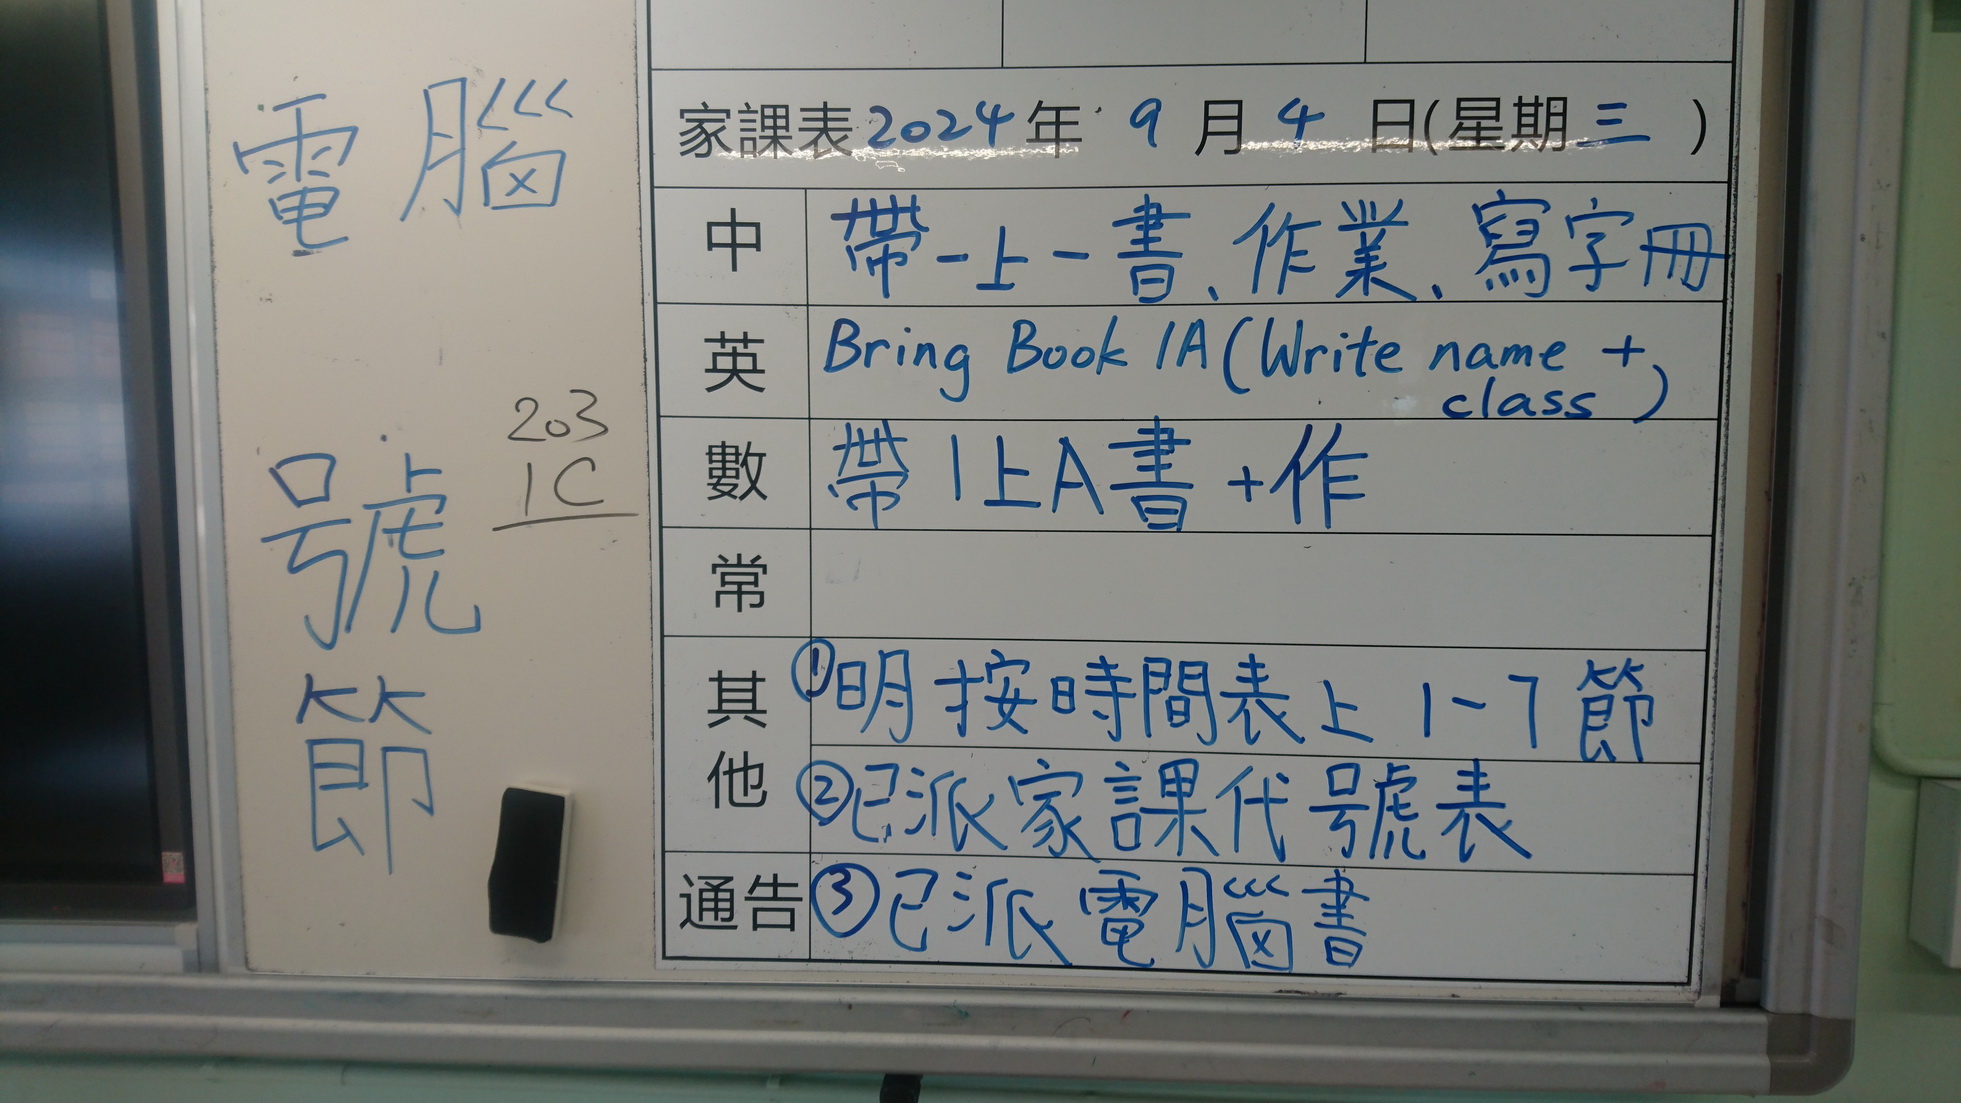 電腦
號
節
203
1C
家課表2024年9月4日(星期三)
中 帶一上一書、作業、寫字冊
英 Bring Book 1A (Write name +
class)
數 帶1上A書+作
常
其他 ①明按時間表上1-7節
②已派家課代號表
通告 ③已派電腦書